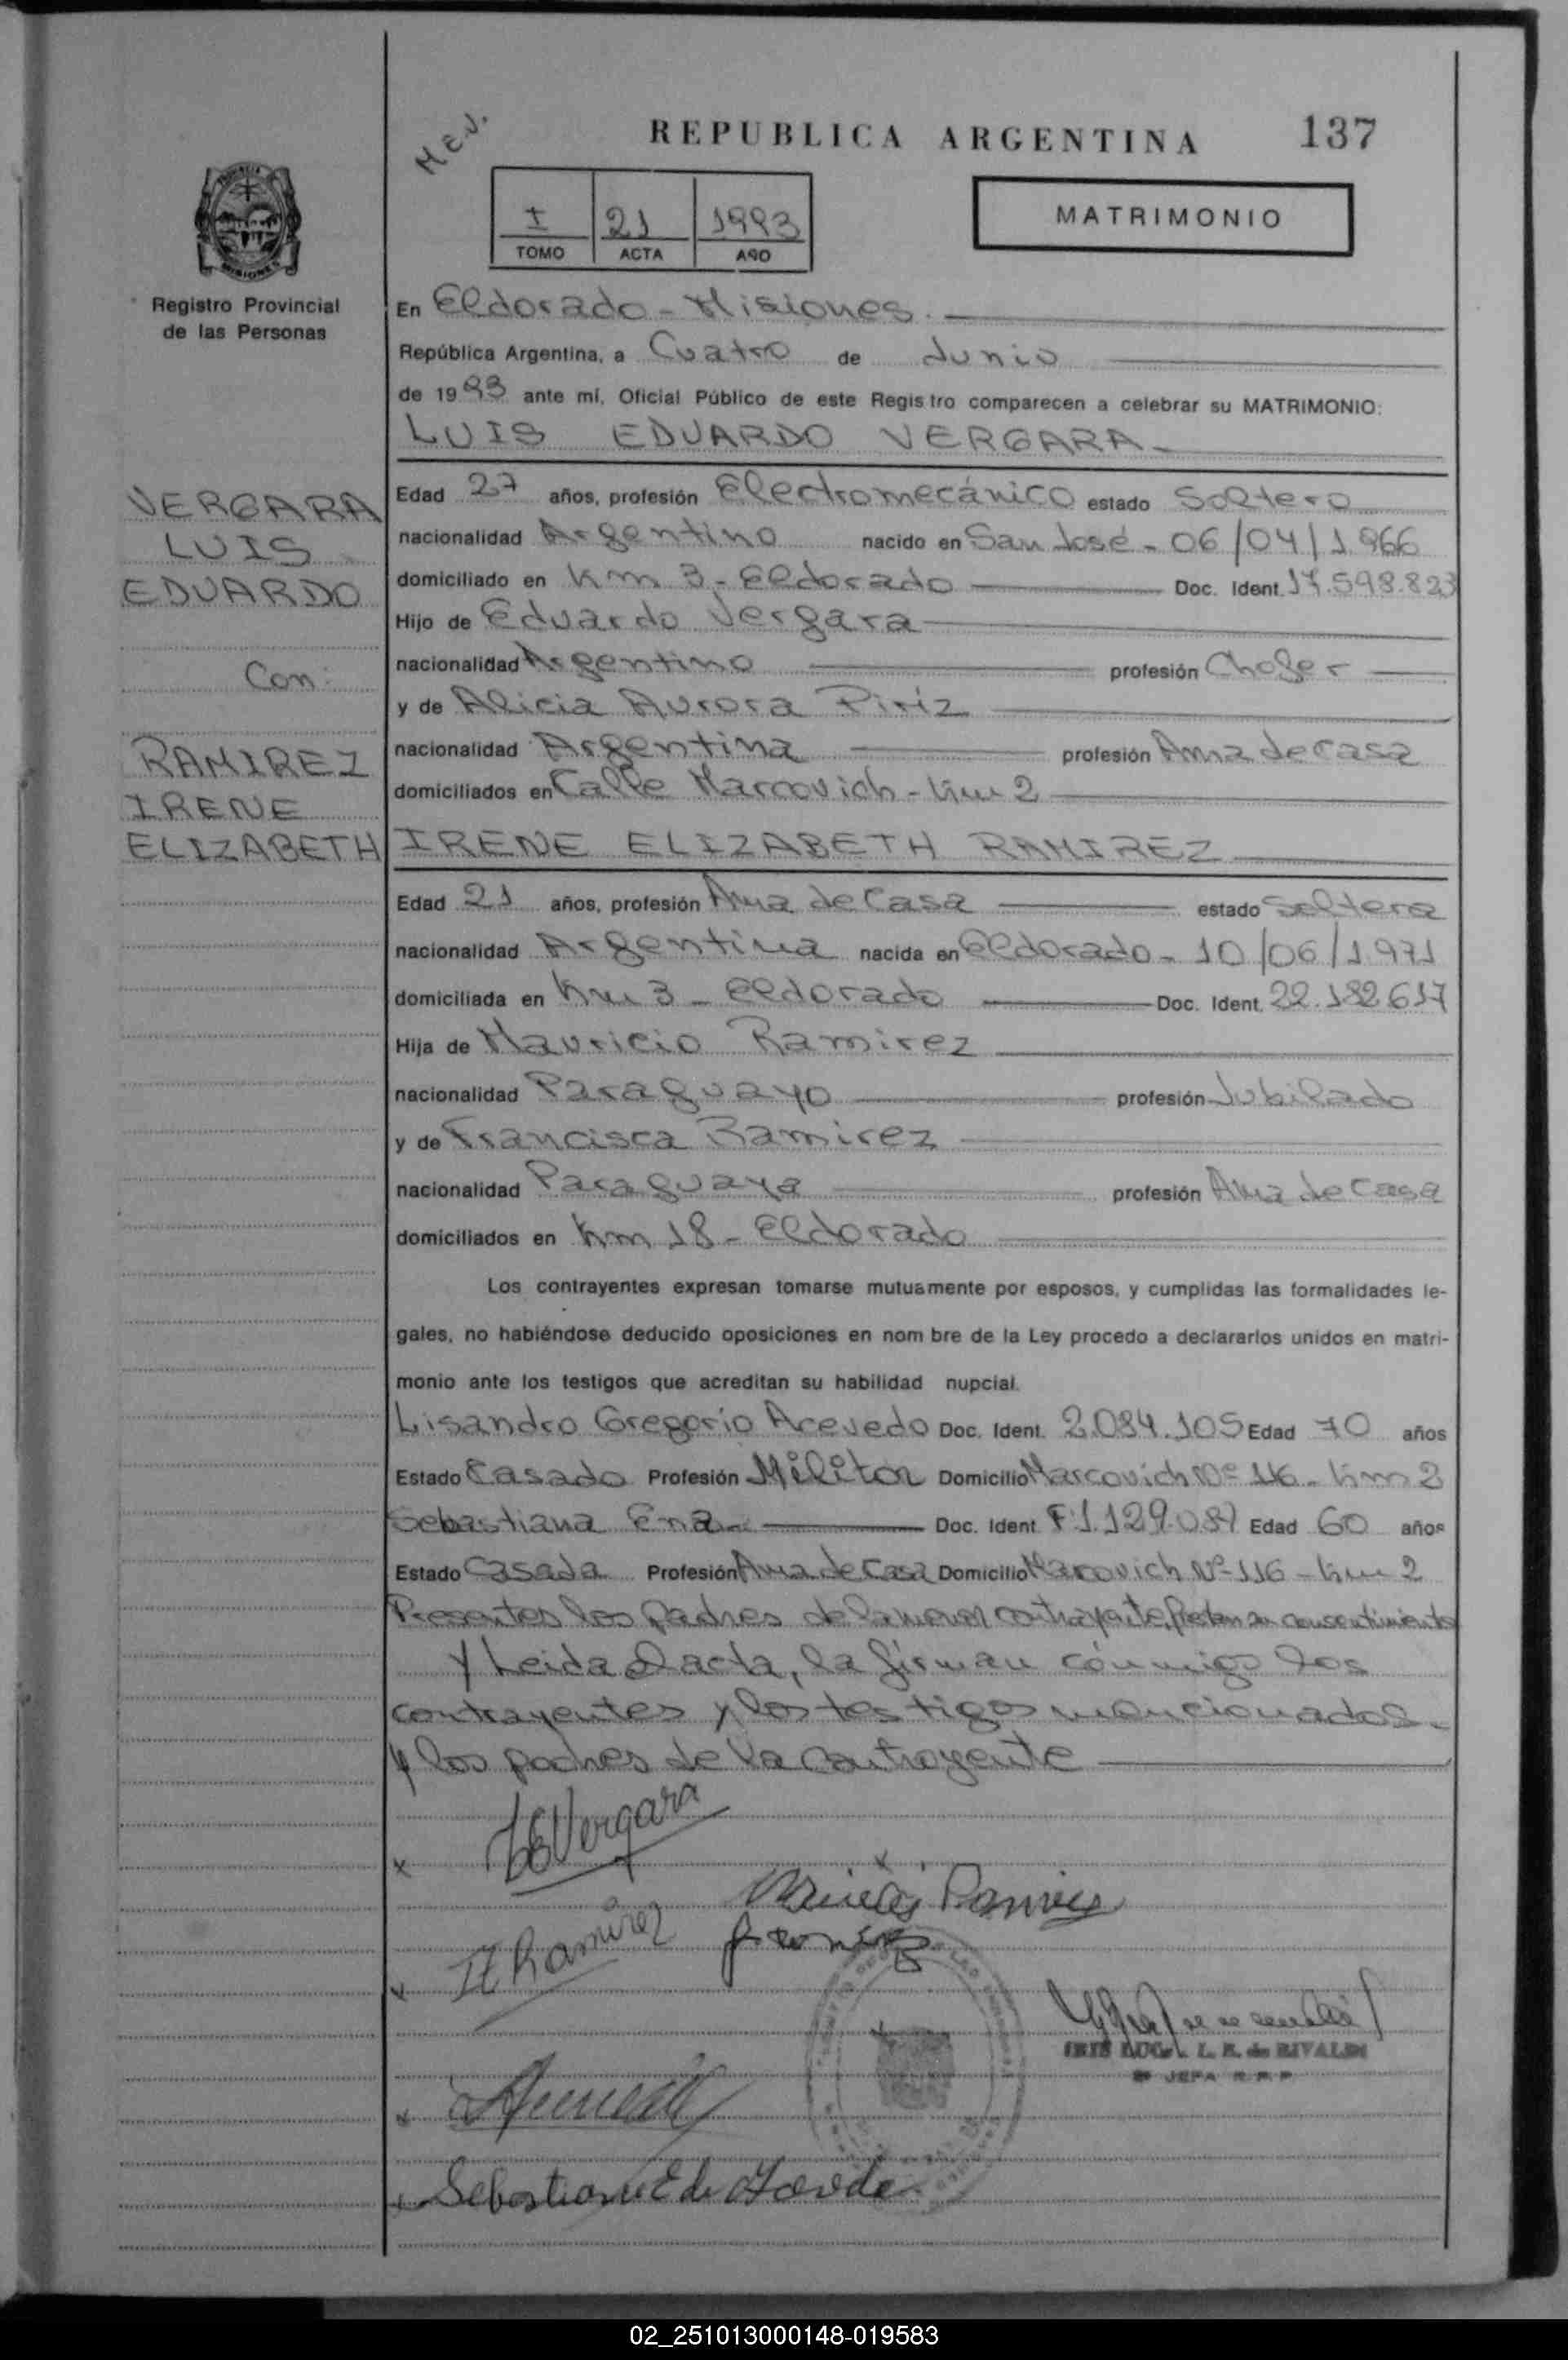 M E.J.
REPUBLICA ARGENTINA 137
MATRIMONIO
I 21 1993
TOMO ACTA AÑO
PROVINCIA
MISIONES
Registro Provincial
de las Personas
En Eldorado - Misiones.
República Argentina, a Cuatro de Junio
de 1993 ante mí, Oficial Público de este Registro comparecen a celebrar su MATRIMONIO:
LUIS EDUARDO VERGARA
VERGARA
LUIS
EDUARDO
Con:
RAMIREZ
IRENE
ELIZABETH
Edad 27 años, profesión Electromecánico estado Soltero
nacionalidad Argentino nacido en San José - 06/04/1966
domiciliado en Km 3 - Eldorado Doc. Ident. 17.598.823
Hijo de Eduardo Vergara
nacionalidad Argentino profesión Chofer
y de Alicia Aurora Piriz
nacionalidad Argentina profesión Ama de Casa
domiciliados en Calle Marcovich - Km 2
IRENE ELIZABETH RAMIREZ
Edad 21 años, profesión Ama de Casa estado Soltera
nacionalidad Argentina nacida en Eldorado - 10/06/1971
domiciliada en Km 3 - Eldorado Doc. Ident. 22.182.617
Hija de Mauricio Ramirez
nacionalidad Paraguayo profesión Jubilado
y de Francisca Ramirez
nacionalidad Paraguaya profesión Ama de Casa
domiciliados en Km 18 - Eldorado
Los contrayentes expresan tomarse mutuamente por esposos, y cumplidas las formalidades le-
gales, no habiéndose deducido oposiciones en nom bre de la Ley procedo a declararlos unidos en matri-
monio ante los testigos que acreditan su habilidad nupcial.
Lisandro Gregorio Acevedo Doc. Ident. 2.084.105 Edad 70 años
Estado Casado Profesión Militar Domicilio Marcovich Nº 116 - Km 2
Sebastiana Ena Doc. Ident. F 1.129.087 Edad 60 años
Estado Casada Profesión Ama de Casa Domicilio Marcovich Nº 116 - Km 2
Presentes los padres de la menor contrayente, prestan su consentimiento
y Leida el acta, la firman conmigo los
contrayentes y los testigos mencionados.
y los padres de la contrayente
LEVergara
Ramirez
IE Ramirez
Sebastiana E de Acevedo
L. R. de RIVALDI
JEFA R.P.P
02_251013000148-019583